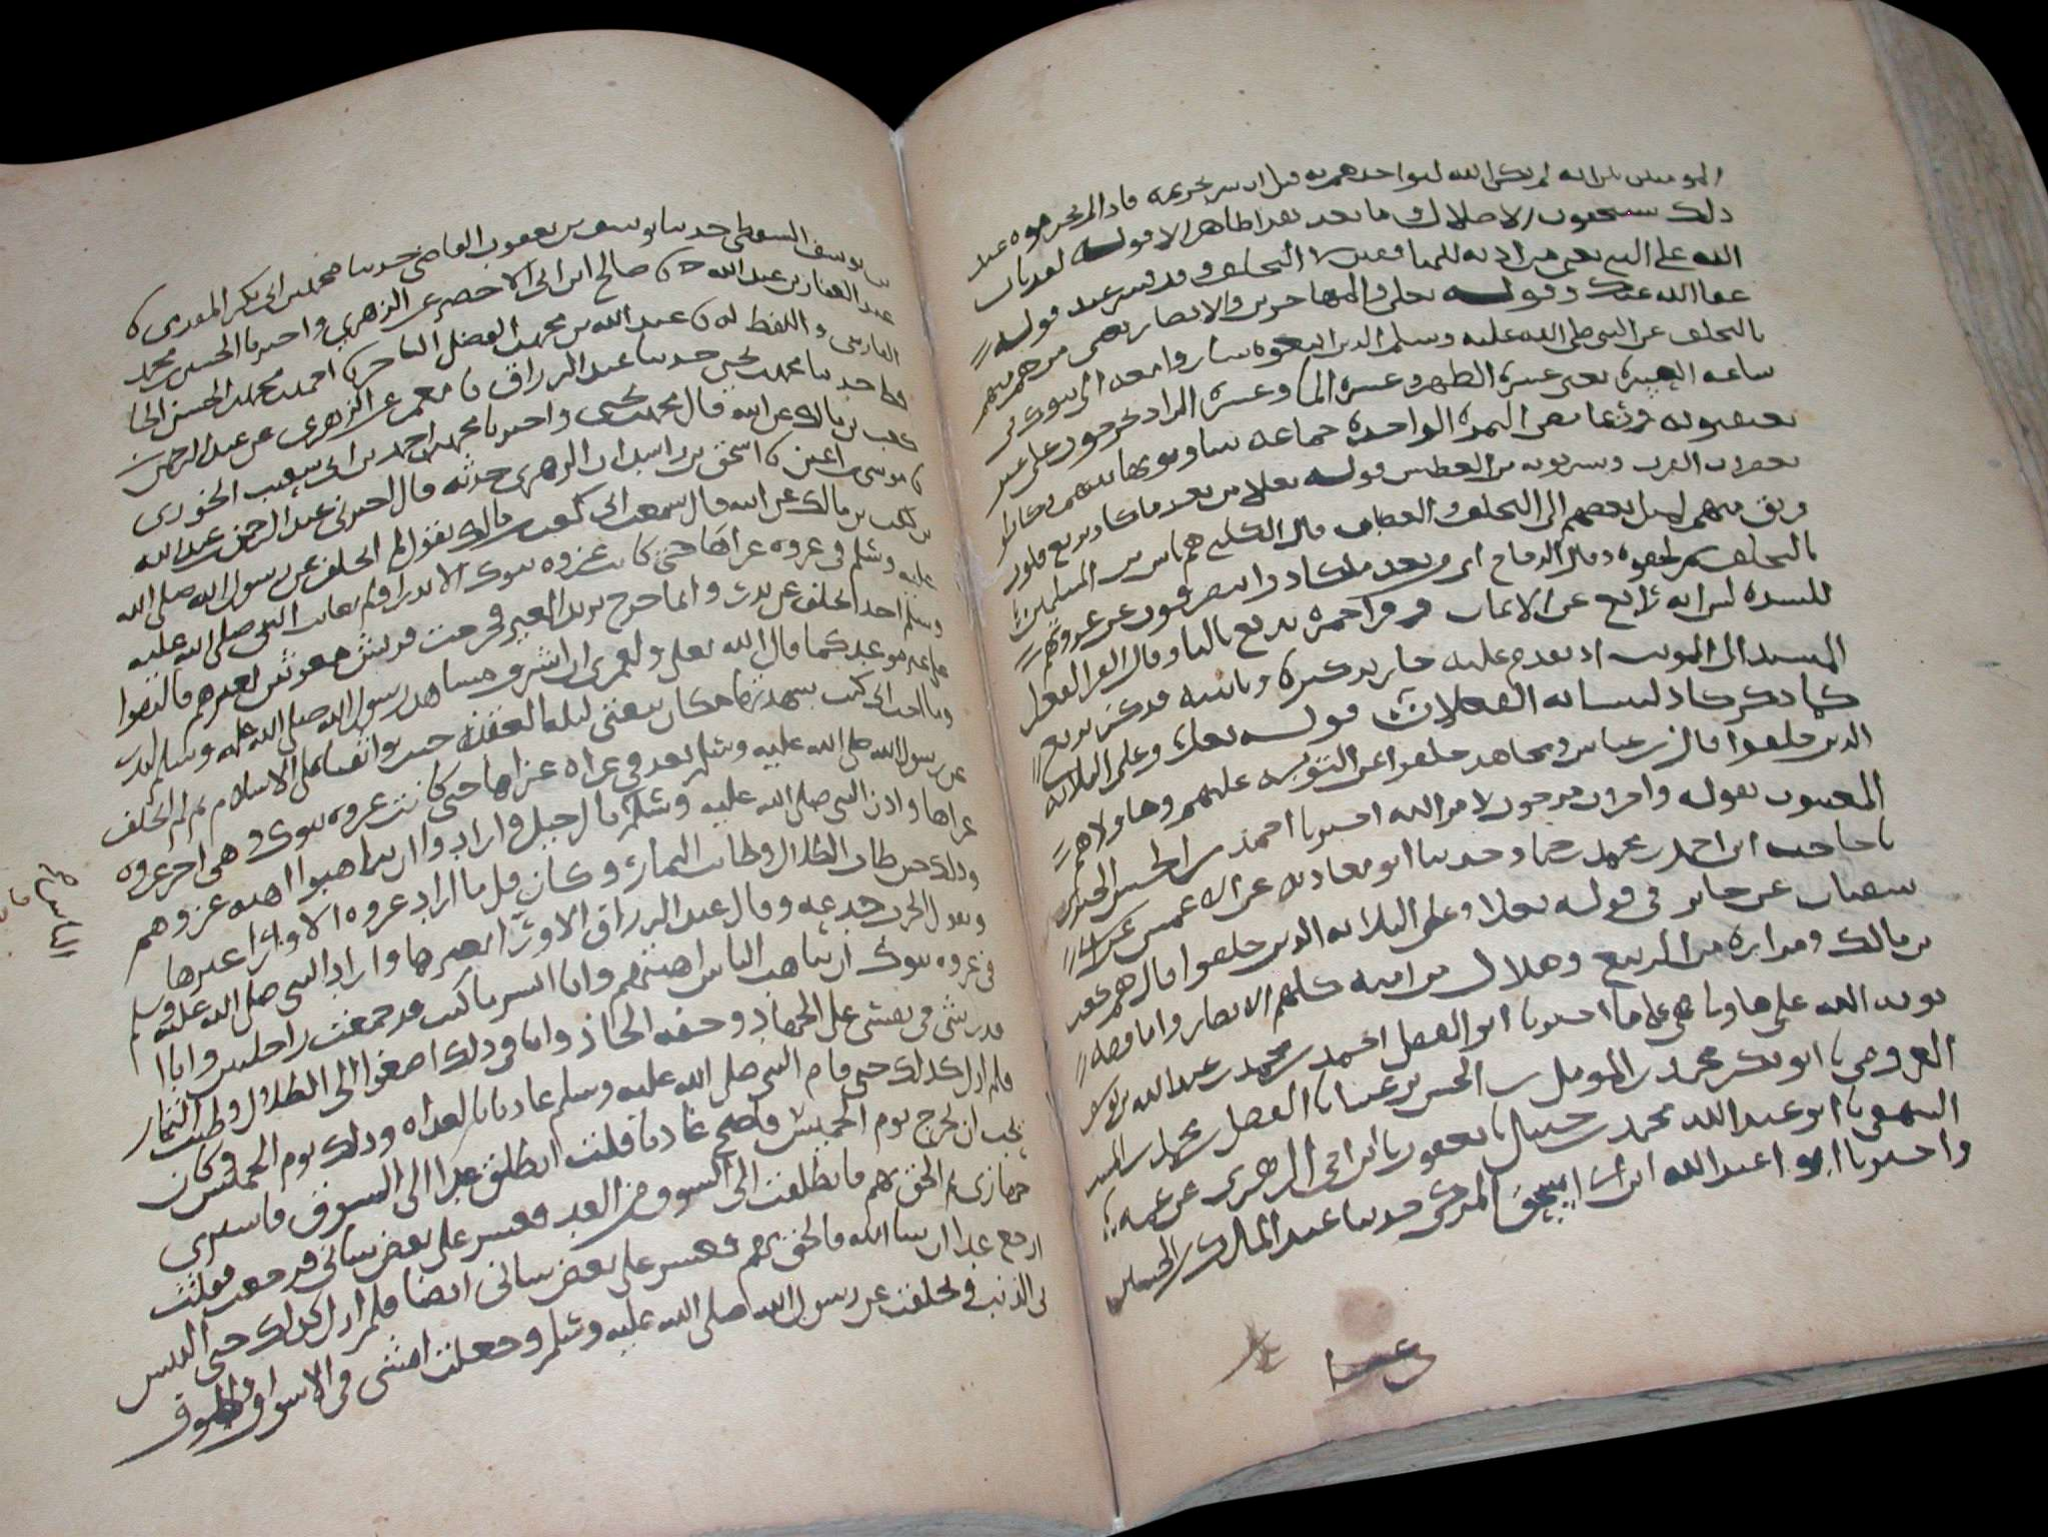 المومنين بانه لم يكن الله ليواخذهم به قبل ان يبين تحريمه فاذا لم يحرموه عند
ذلك يستحقون الاضلال وما بعد هذا ظاهر الا قوله لقد تاب
الله على النبي يعني من اذنه للمنافقين في التخلف وقد فسر عند قوله
عفا الله عنك وقوله تعلى والمهاجرين والانصار يعني من هم منهم
بالتخلف عن النبي صلى الله عليه وسلم الذين اتبعوه ساروا معه الى تبوك في
ساعة العسرة يعني عسرة الظهر وعسرة الما وعسرة الزاد يخرجون على
يعتقبونه وربما مص التمرة الواحدة جماعة يتناوبونها بينهم وكانوا
يعصرون الفرث ويشربونه من العطش قوله تعلى من بعد ما كاد يزيغ قلوب
فريق منهم لميل بعضهم الى التخلف والعصيان قال الكلبي هم ناس من المسلمين
بالتخلف ثم لحقوه وقال الزجاج اي من بعد ما كادوا ينصرفون عن غزوتهم
للشدة ليس انه زايغ عن الايمان وقرا حمزة يزيغ باليا وقال الفرا الفعل
المسند الى المونث اذ تقدم عليه جاز تذكيره وتانيثه
كما ذكر كاد لتانيث الفعلان قوله تعلى وعلى الثلاثة
الذين خلفوا قال ابن عباس ومجاهد خلفوا عن التوبة عليهم وهاولا هم
المعنيون بقوله واخرون مرجون لامر الله اخبرنا احمد بن الحسن الحيري
نا حاجب ابن احمد نا محمد بن حماد حدثنا ابو معاوية عن الاعمش عن ابي
سفيان عن جابر في قوله تعلى وعلى الثلاثة الذين خلفوا قال هم كعب
بن مالك ومرارة بن الربيع وهلال بن امية كلهم الانصار واما قصة
توبة الله على هاولا فهي على ما اخبرنا ابو الفضل احمد بن محمد بن عبد الله بن يوسف
العروضي نا ابو بكر محمد بن المومل بن الحسن بن عيسى نا الفضل بن محمد بن المسيب
البيهقي نا ابو عبد الله محمد بن حنبل نا يعقوب نا ابن اخي الزهري عن عمه
واخبرنا ابو عبد الله ابن ابي اسحق المزكي حدثنا عبد الملك بن الحسن
بن يوسف السقطي حدثنا يوسف بن يعقوب القاضي حدثنا محمد بن ابي بكر المقدمي نا
عبد الغفار بن عبد الله نا صالح ابن ابي الاخضر عن الزهري واخبرنا الحسن بن محمد
الفارسي واللفظ له نا عبد الله بن محمد بن الفضل التاجر نا احمد بن محمد بن الحسن الحا
فظ حدثنا محمد بن يحيى حدثنا عبد الرزاق نا معمر عن الزهري عن عبد الرحمن بن
كعب بن مالك عن ابيه قال محمد بن يحيى واخبرنا محمد بن احمد بن ابي شعيب الحوري
نا موسى بن اعين نا اسحق بن راشد ان الزهري حدثه قال اخبرني عبد الرحمن بن عبد الله
بن كعب بن مالك عن ابيه قال سمعت ابي كعب بن مالك يقول لم اتخلف عن رسول الله صلى الله
عليه وسلم في غزوة غزاها حتى كانت غزوة تبوك الا بدرا ولم يعاتب النبي صلى الله عليه
وسلم احدا تخلف عن بدر وانما خرج يريد العير فخرجت قريش مغوثين لعيرهم فالتقوا
على غير موعد كما قال الله تعلى ولعمري ان اشرف مشاهد رسول الله صلى الله عليه وسلم لبدر
وما احب اني كنت شهدتها مكان بيعتي ليلة العقبة حيث تواثقنا على الاسلام ثم لم اتخلف
عن رسول الله صلى الله عليه وسلم بعد في غزاة غزاها حتى كانت غزوة تبوك وهي اخر غزوة
غزاها واذن النبي صلى الله عليه وسلم بالرحيل واراد ان يتاهبوا اهبة غزوهم
وذلك حين طاب الظلال وطابت الثمار وكان قل ما اراد غزوة الا وارى غيرها
ويقول الحرب خدعة وقال عبد الرزاق الا ورى بغيرها واراد النبي صلى الله عليه وسلم
في غزوة تبوك ان يتاهب الناس اهبتهم وانا ايسر ما كنت قد جمعت راحلتين وانا
قدر شي في نفسي على الجهاد وخفة الحاذ وانا في ذلك اصغوا الى الظلال وطيب الثمار
فلم ازل كذلك حتى قام النبي صلى الله عليه وسلم غاديا بالغداة وذلك يوم الخميس وكان
يحب ان يخرج يوم الخميس فاصبح غاديا فقلت انطلق غدا الى السوق فاشتري
جهازي ثم الحق بهم فانطلقت الى السوق من الغد فعسر علي بعض شاني فرجعت فقلت
ارجع غدا ان شا الله فالحق بهم فعسر علي بعض شاني ايضا فلم ازل كذلك حتى التبس
بي الذنب وتخلفت عن رسول الله صلى الله عليه وسلم وجعلت امشي في الاسواق واطوف